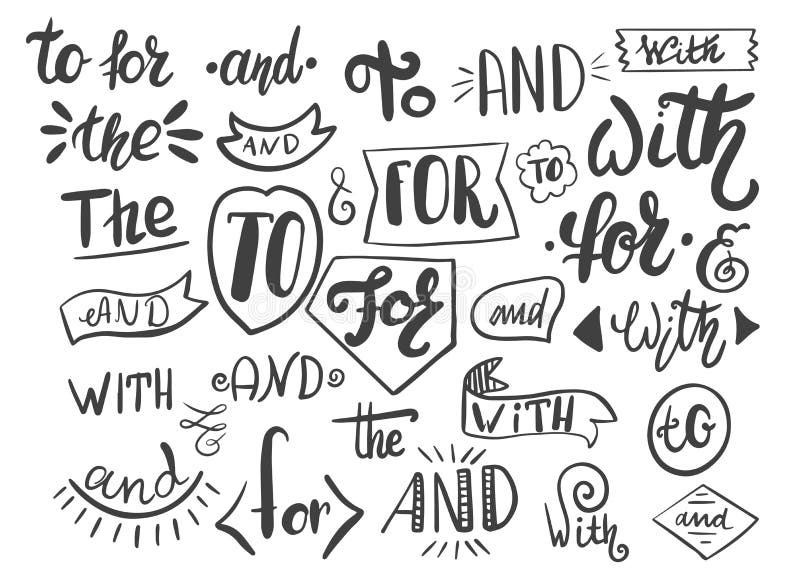 to for
·and·
To
AND
With
the
AND
&
FOR
TO
With
The
TO
·for·
&
AND
For
and
With
WITH
&
AND
the
WiTH
to
and
for
AND
With
and